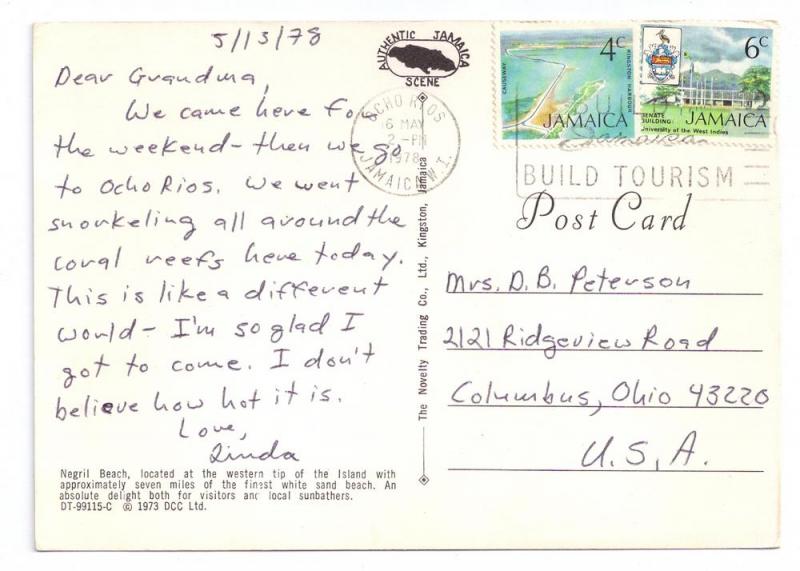 5/13/78
Dear Grandma,
We came here for
the weekend - then we go
to Ocho Rios. We went
snorkeling all around the
coral reefs here today.
This is like a different
world - I'm so glad I
got to come. I don't
believe how hot it is.
Love,
Linda
Negril Beach, located at the western tip of the Island with
approximately seven miles of the finest white sand beach. An
absolute delight both for visitors and local sunbathers.
DT-99115-C © 1973 DCC Ltd.
AUTHENTIC JAMAICA
SCENE
OCHO RIOS
16 MAY
2-PM
1978
JAMAICA W.I.
The Novelty Trading Co., Ltd., Kingston, Jamaica
4c
CAUSEWAY
KINGSTON HARBOUR
JAMAICA
6c
SENATE
BUILDING:
JAMAICA
University of the West Indies
BUILD TOURISM
Post Card
Mrs. D. B. Peterson
2121 Ridgeview Road
Columbus, Ohio 43220
U.S.A.